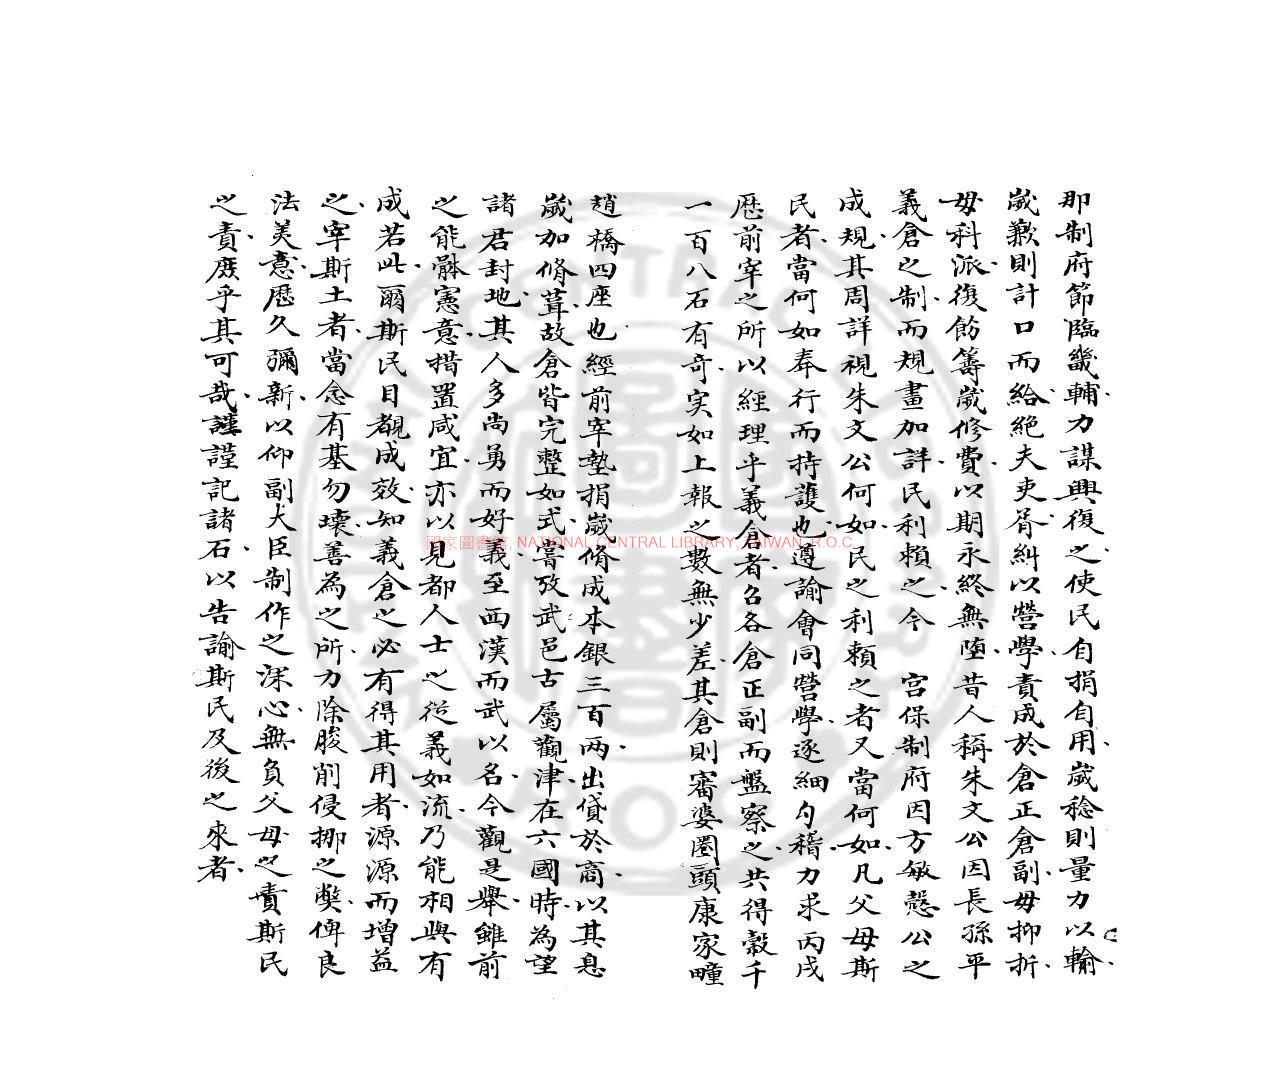 那制府節臨畿輔力謀興復之使民自捐自用歲稔則量力以輸
歲歉則計口而給絕夫吏胥糾以營學責成於倉正倉副毋抑折
毋科派復飭籌歲修費以期永終無墮昔人稱朱文公因長孫平
義倉之制而規畫加詳民利賴之今 宮保制府因方敏慤公之
成規其周詳視朱文公何如民之利賴之者又當何如凡父母斯
民者當何如奉行而持護也遵諭會同營學逐細勻稽力求丙戌
歷前宰之所以經理乎義倉者召各倉正副而盤察之共得穀千
一百八石有奇实如上報之數無少差其倉則審婆圈頭康家疃
趙橋四座也經前宰墊捐歲脩成本銀三百兩出貸於商以其息
歲加脩葺故倉皆完整如式嘗攷武邑古屬觀津在六國時為望
諸君封地其人多尚勇而好義至西漢而武以名今觀是舉雖前
之能體憲意措置咸宜亦以見都人士之從義如流乃能相與有
成若此爾斯民目覩成效知義倉之必有得其用者源源而增益
之宰斯土者當念有基勿壞善為之所力除朘削侵挪之弊俾良
法美意歷久彌新以仰副大臣制作之深心無負父母之責斯民
之責庶乎其可哉謹謹記諸石以告諭斯民及後之來者
國家圖書館, NATIONAL CENTRAL LIBRARY, TAIWAN, R.O.C.